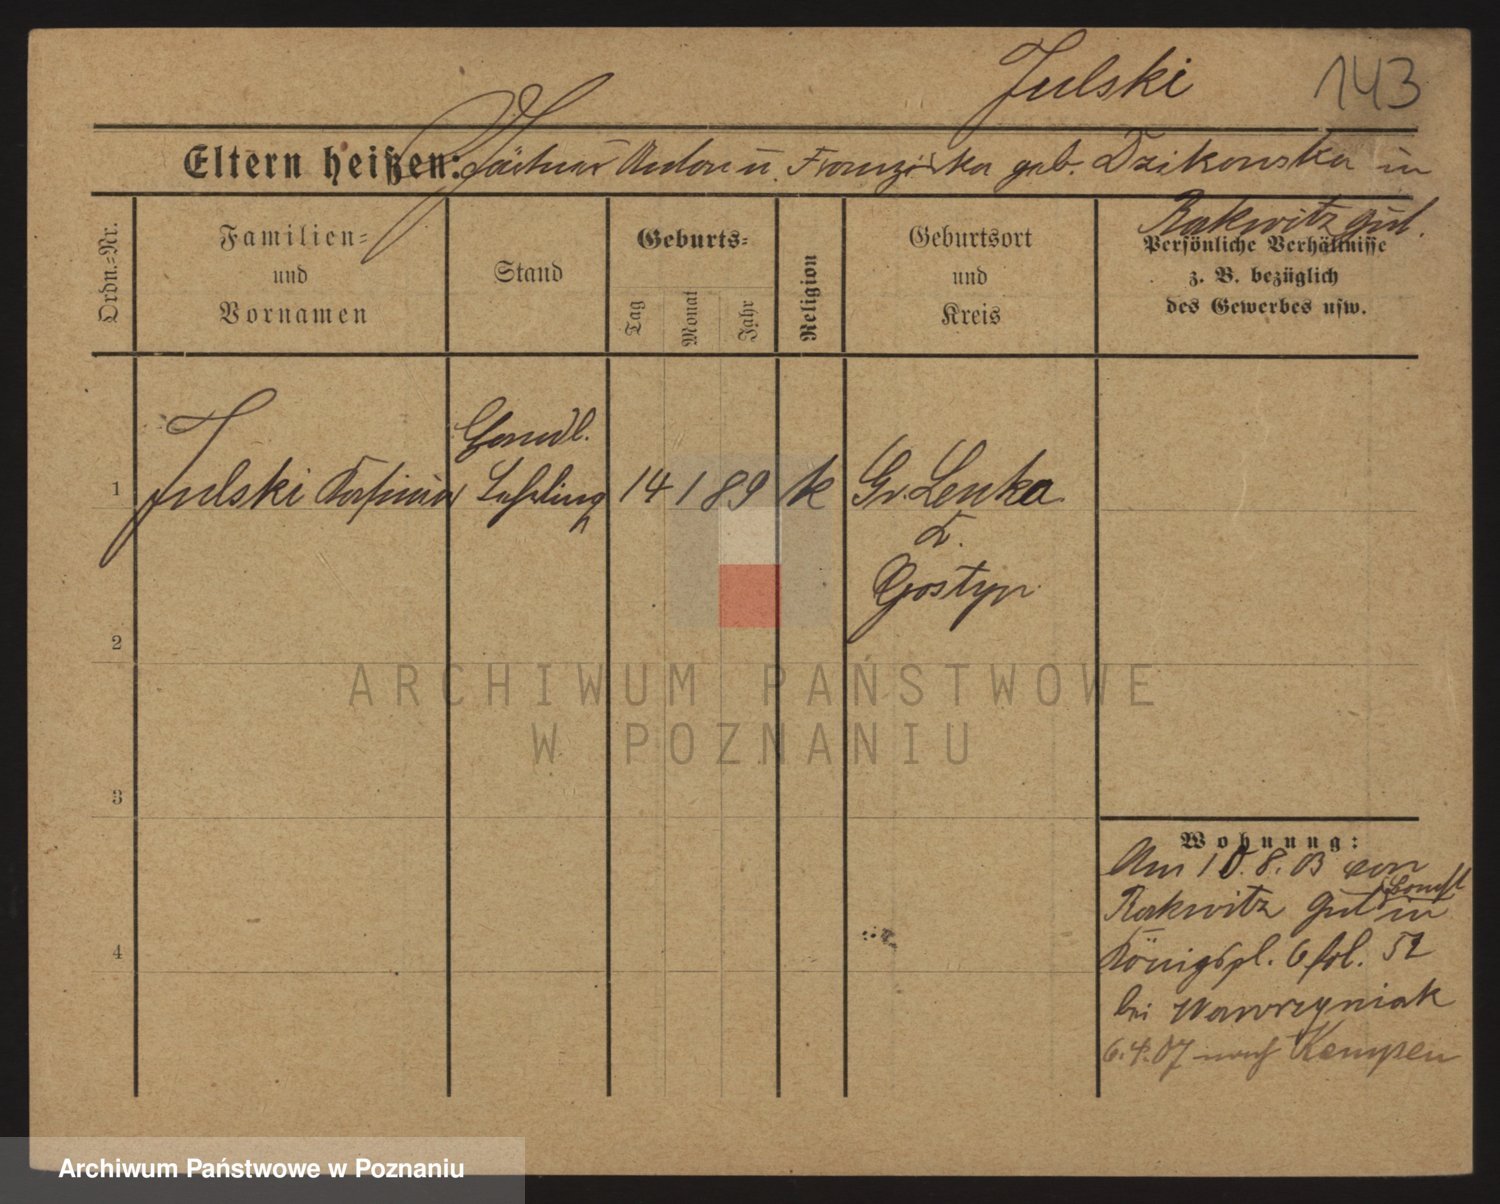 Julski
143
Eltern heißen: Gärtner Anton u. Franziska geb. Dzikowska in
Rakwitz gut.
Ordn.=Nr.
Familien=
und
Vornamen
Stand
Geburts=
Tag
Monat
Jahr
Religion
Geburtsort
und
Kreis
Persönliche Verhältnisse
z. B. bezüglich
des Gewerbes usw.
1
Julski Kasimir
Handl.
Lehrling
14 1 89
k
Gr. Lenka
K.
Gostyn
2
3
4
Wohnung:
Am 10.8.03 von
Rakwitz gut in
Königspl. 6 fol. 52
bei Wawrzyniak
6.4.07 nach Kempen
ARCHIWUM PAŃSTWOWE
W POZNANIU
Archiwum Państwowe w Poznaniu